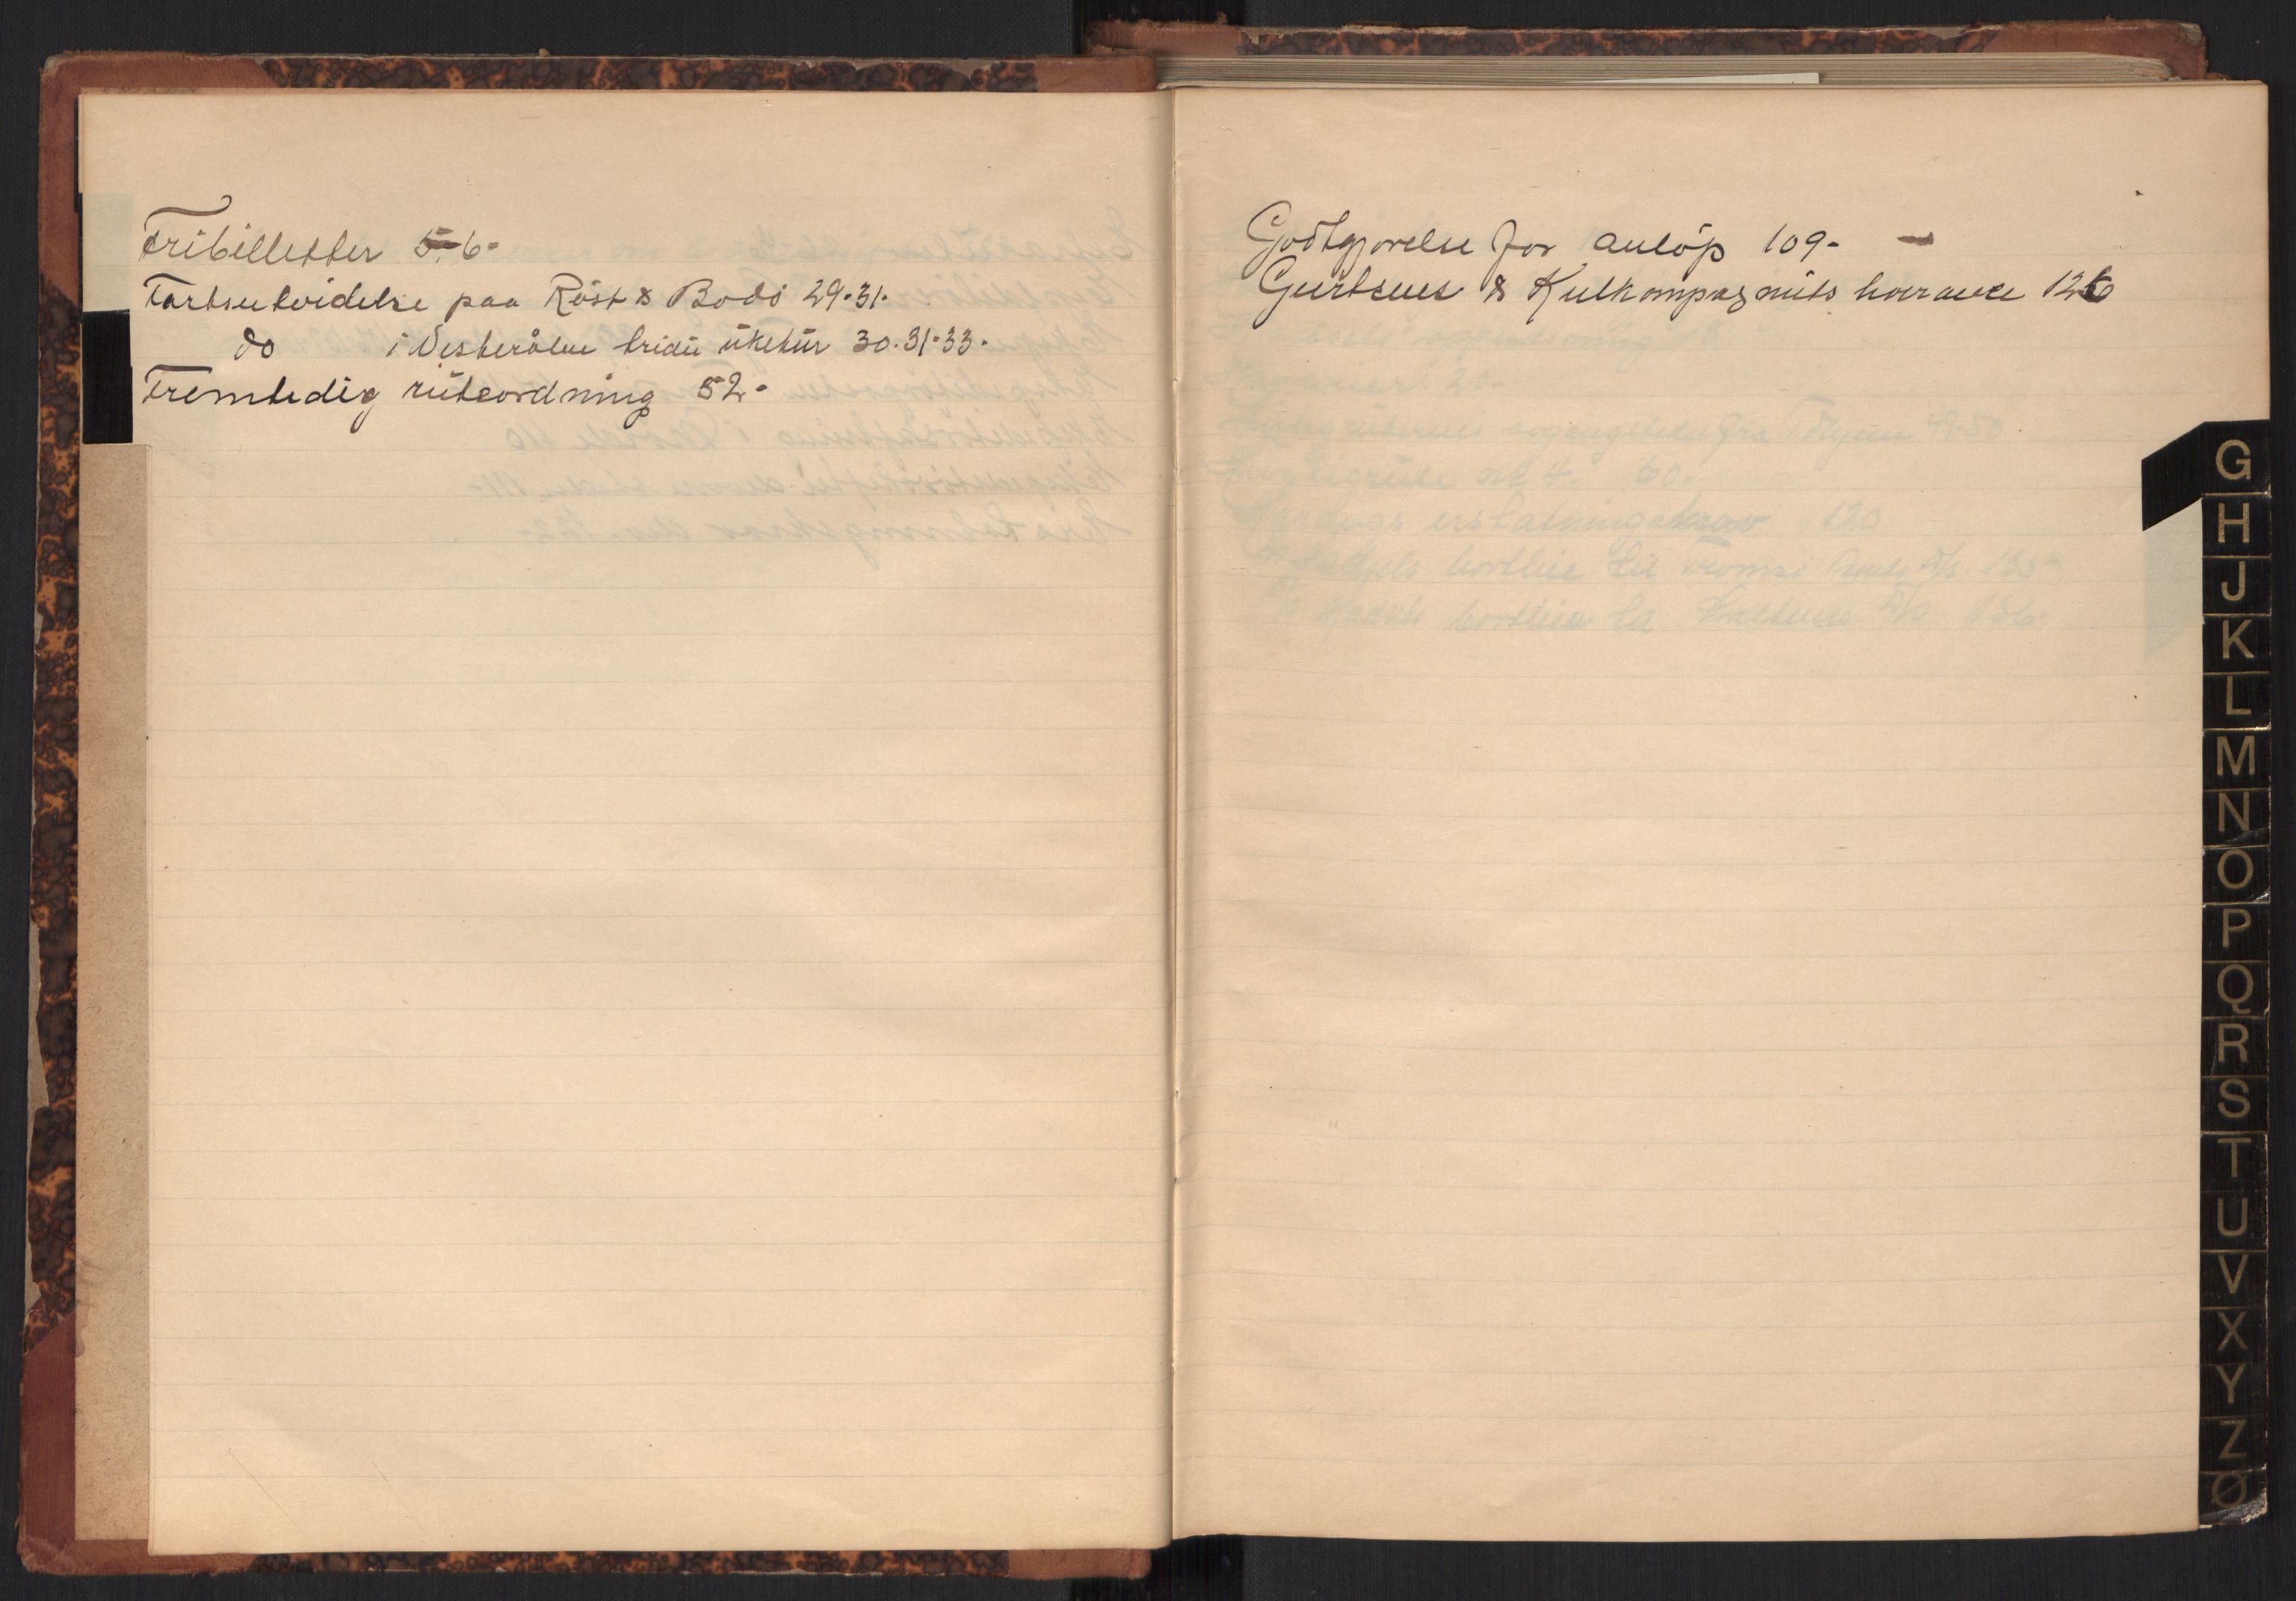 Fribilletter 5-6-
Fartsutvidelse paa Röst & Bodö 29-31-
do i Vesterålen tridie üketür 30-31-33-
Fremtidig rüteordning 52-
Godtgjorelse for anlöp 109-
& Kulkompagniets havarie 126
G
H
J
K
L
M
N
O
P
Q
R
S
T
U
V
X
Y
Z
Ø